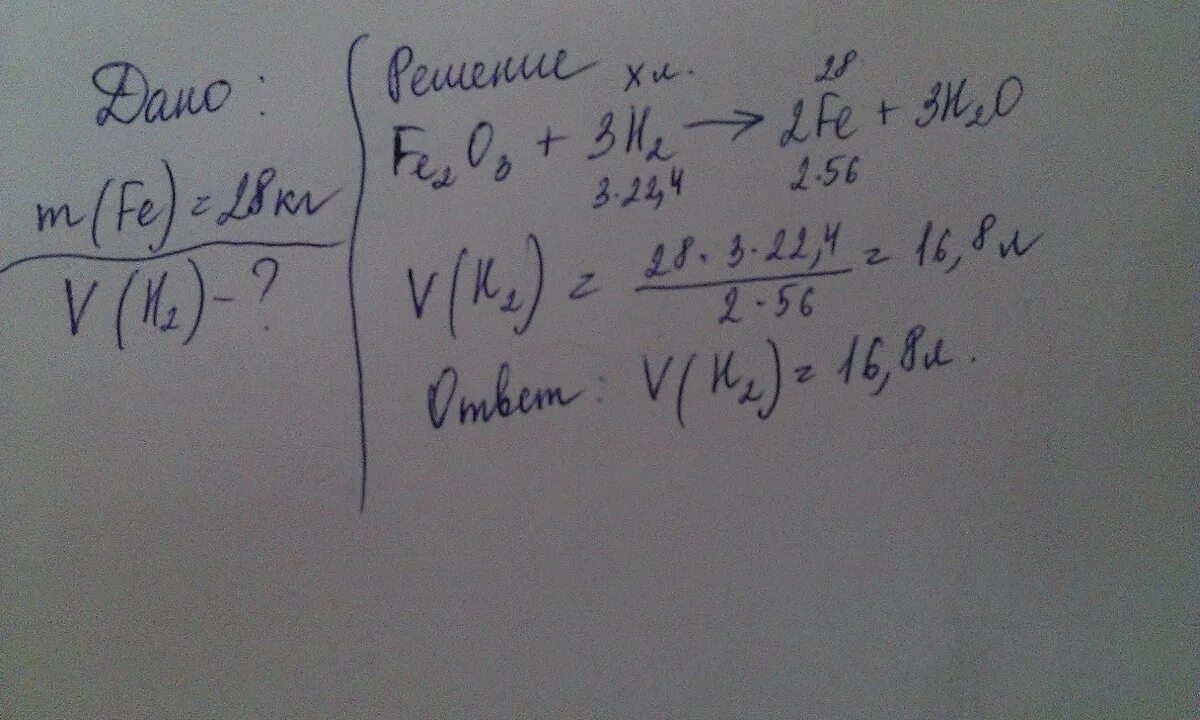 Дано:
m(Fe) = 28кг
V(H₂) - ?
Решение
x л. 28
Fe₂O₃ + 3H₂ → 2Fe + 3H₂O
3·22,4 2·56
V(H₂) = 28·3·22,4 / 2·56 = 16,8л
Ответ: V(H₂) = 16,8л.